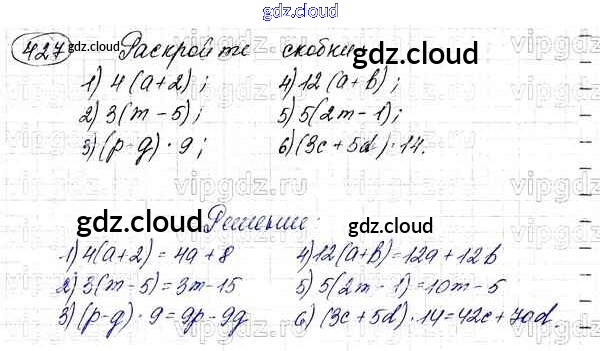 gdz.cloud
427 Раскройте скобки
gdz.cloud
1) 4(a+2); 4) 12(a+b);
2) 3(m-5); 5) 5(2m-1);
3) (p-g)·9; 6) (3c+5d)·14.
vipgdz.ru
gdz.cloud gdz.cloud
Решение:
gdz.cloud gdz.cloud
1) 4(a+2)=4a+8 4) 12(a+b)=12a+12b
2) 3(m-5)=3m-15 5) 5(2m-1)=10m-5
3) (p-g)·9=9p-9g 6) (3c+5d)·14=42c+70d.
gdz.cloud